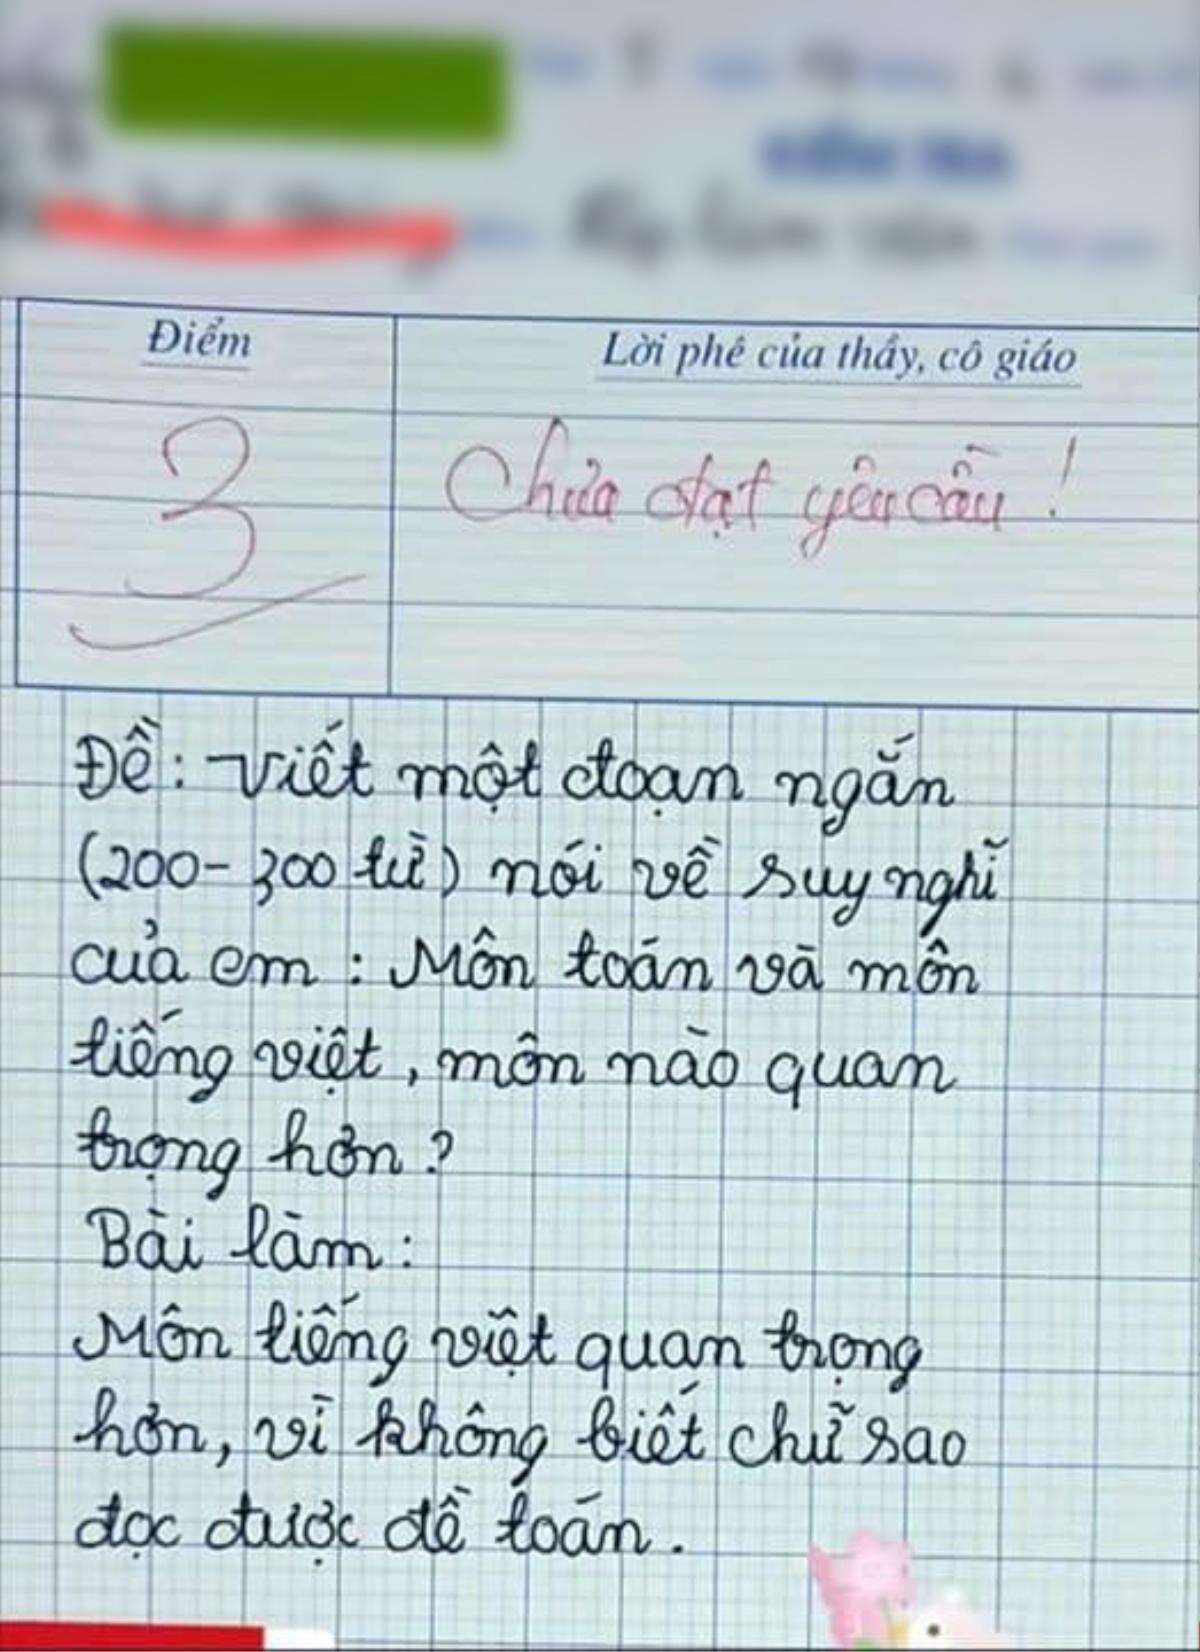 Điểm
Lời phê của thầy, cô giáo
3
Chưa đạt yêu cầu !
Đề : Viết một đoạn ngắn
(200 - 300 từ) nói về suy nghĩ
của em : Môn toán và môn
tiếng việt , môn nào quan
trọng hơn ?
Bài làm :
Môn tiếng việt quan trọng
hơn, vì không biết chữ sao
đọc được đề toán .